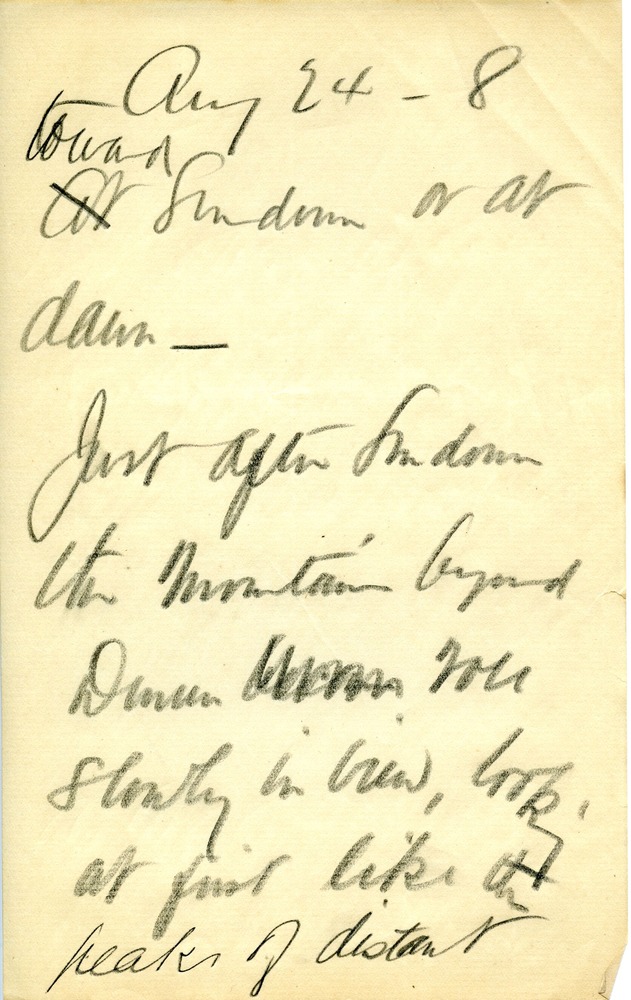 Aug 24 - 8
toward
At Sundown or at
dawn —
Just after Sundown
the Mountain beyond
slowly in view, looking
at first like the
peaks of distant